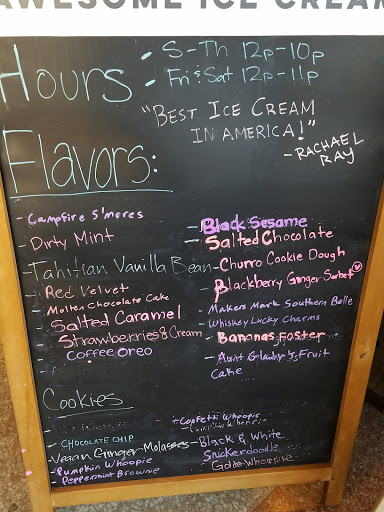 AWESOME ICE CREAM
Hours: S-Th 12p-10p
Fri & Sat 12p-11p
"BEST ICE CREAM
IN AMERICA!"
- RACHAEL
RAY
Flavors:
- Campfire S'mores
- Dirty Mint
- Tahitian Vanilla Bean
- Red Velvet
- Molten Chocolate Cake
- Salted Caramel
- Strawberries & Cream
- Coffee Oreo
- Black Sesame
- Salted Chocolate
- Churro Cookie Dough
- Blackberry Ginger Sorbet
- Makers Mark Southern Belle
- Whiskey Lucky Charms
- Bananas Foster
- Aunt Glady's Fruit
Cake
Cookies
- CHOCOLATE CHIP
- Vegan Ginger Molasses
- Pumpkin Whoopie
- Peppermint Brownie
- Confetti Whoopie
- Black & White
- Snickerdoodle